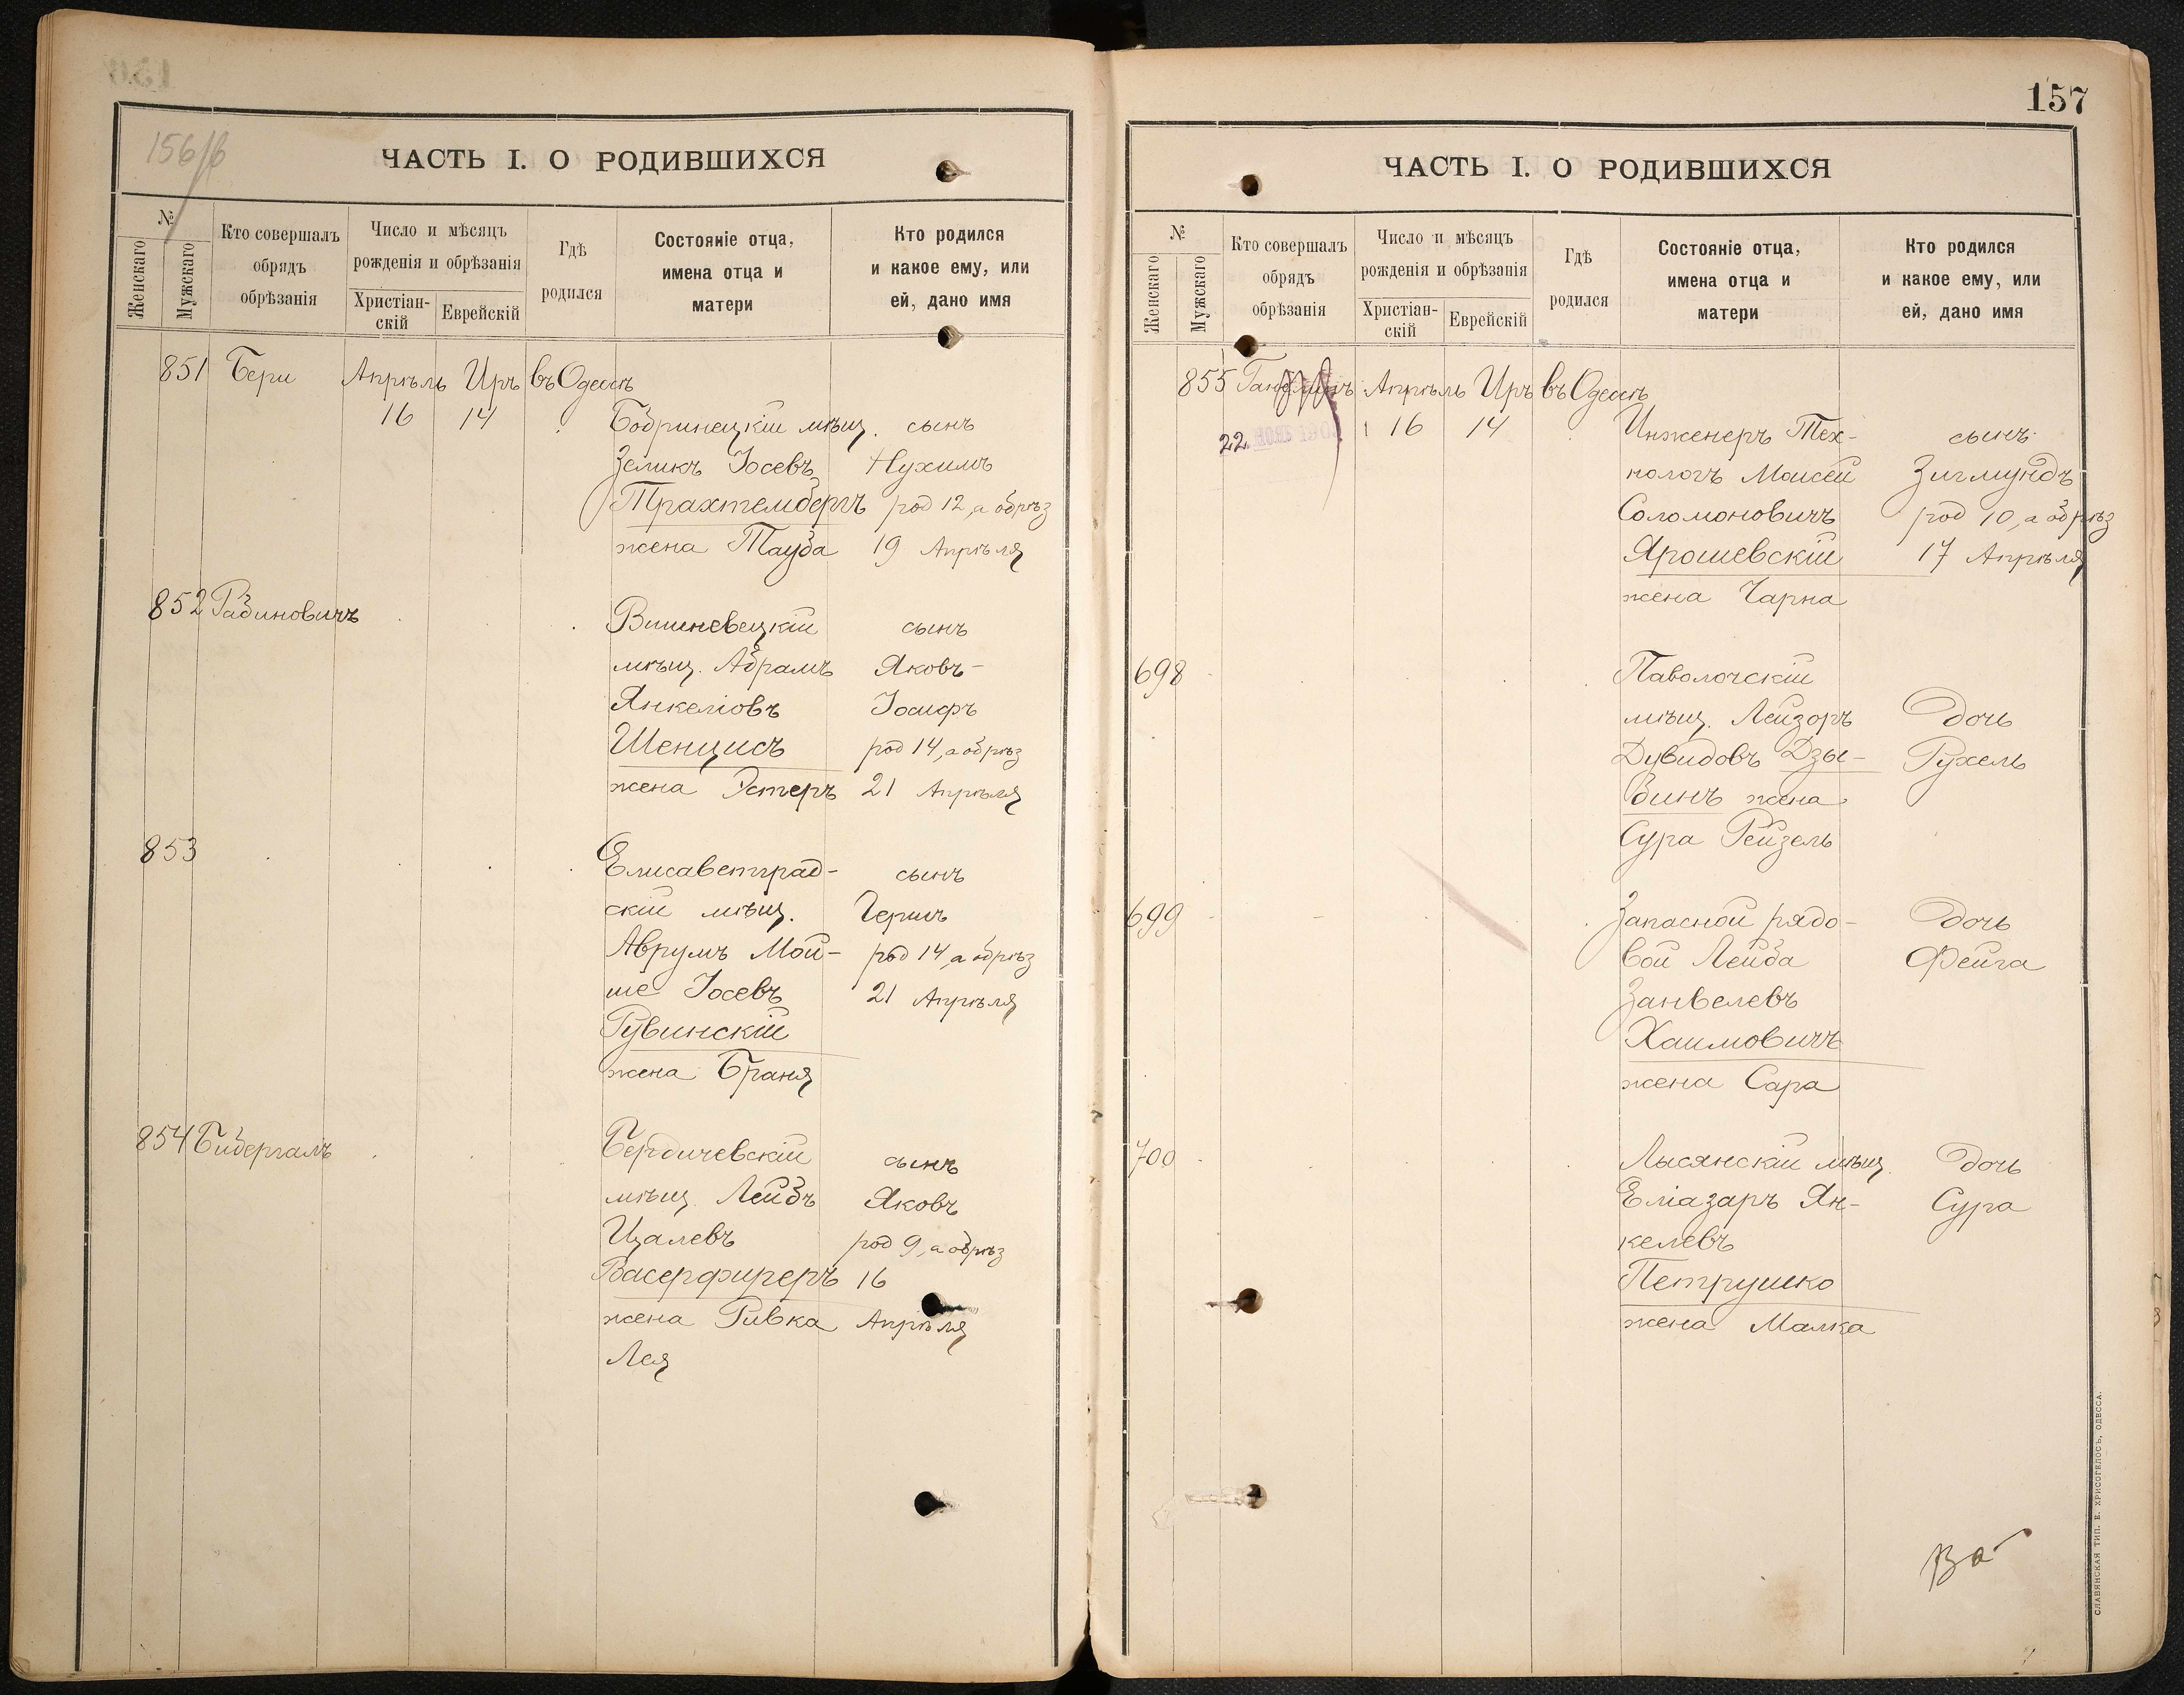 156/в
ЧАСТЬ I. О РОДИВШИХСЯ
№
Женскаго
Мужскаго
Кто совершалъ
обрядъ
обрѣзанія
Число и мѣсяцъ
рожденія и обрѣзанія
Христіан-
скій
Еврейскій
Гдѣ
родился
Состояніе отца,
имена отца и
матери
Кто родился
и какое ему, или
ей, дано имя
851 Бери Апрѣль Иръ въ Одессѣ
16 14 Бобринецкій мѣщ. сынъ
Зеликъ Іосевъ Нухимъ
Трахтембергъ род 12, а обрѣз
жена Тауба 19 Апрѣля
852 Рабиновичъ Вишневецкій сынъ
мѣщ. Абрамъ Яковъ-
Янкеліовъ Іосифъ
Шенцисъ род 14, а обрѣз
жена Эстеръ 21 Апрѣля
853 Елисаветград- сынъ
скій мѣщ. Гершъ
Аврумъ Мой- род 14, а обрѣз
ше Іосевъ 21 Апрѣля
Рувинскій
жена Браня
854 Бибергалъ Бердичевскій сынъ
мѣщ. Лейбъ Яковъ
Цалевъ род 9, а обрѣз
Васерфиреръ 16
жена Ривка Апрѣля
Лея
157
ЧАСТЬ I. О РОДИВШИХСЯ
№
Женскаго
Мужскаго
Кто совершалъ
обрядъ
обрѣзанія
Число и мѣсяцъ
рожденія и обрѣзанія
Христіан-
скій
Еврейскій
Гдѣ
родился
Состояніе отца,
имена отца и
матери
Кто родился
и какое ему, или
ей, дано имя
855 Апрѣль Иръ въ Одессѣ
22 16 14 Инженеръ Тех- сынъ
нологъ Моисей Зигмундъ
Соломоновичъ род 10, а обрѣз
Ярошевскій 17 Апрѣля
жена Чарна
698 Паволочскій
мѣщ. Лейзоръ дочь
Дувидовъ Дзы- Рухель
бинъ жена
Сура Рейзель
699 Запасной рядо- дочь
вой Лейба Фейга
Занвелевъ
Хаимовичъ
жена Сара
700 Лысянскій мѣщ. дочь
Еліазаръ Ян- Сура
келевъ
Петрушко
жена Малка
СЛАВЯНСКАЯ ТИП. Е. ХРИСОГЕЛОСЪ, ОДЕССА.